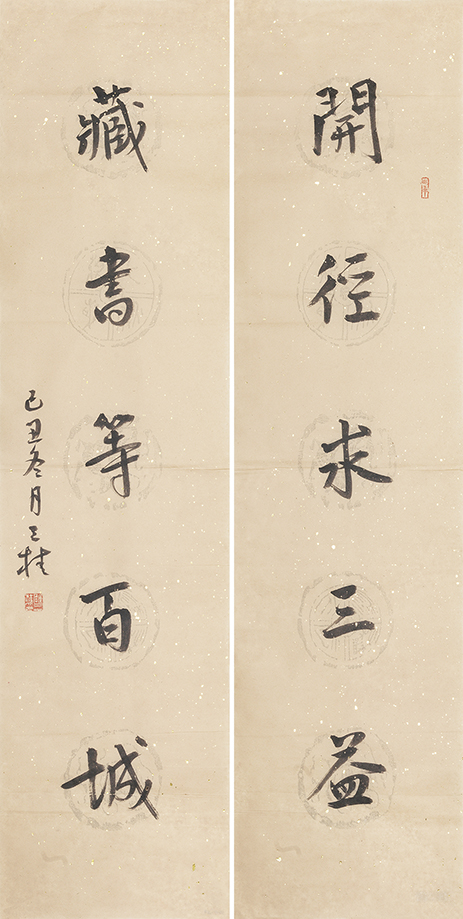 開徑求三益
藏書等百城
己丑冬月三桂